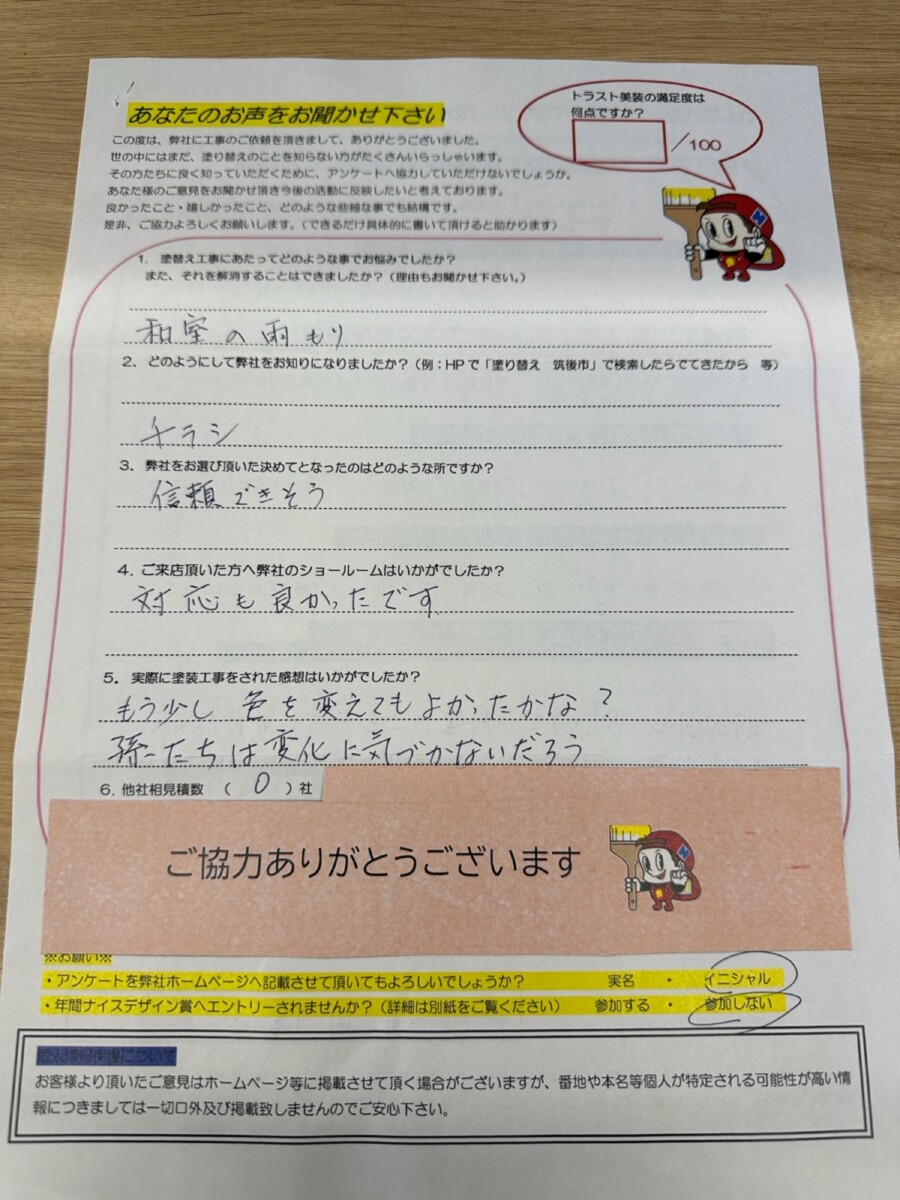 あなたのお声をお聞かせ下さい
トラスト美装の満足度は
何点ですか？
／100
この度は、弊社に工事のご依頼を頂きまして、ありがとうございました。
世の中にはまだ、塗り替えのことを知らない方がたくさんいらっしゃいます。
その方たちに良く知っていただくために、アンケートへ協力していただけないでしょうか。
あなた様のご意見をお聞かせ頂き今後の活動に反映したいと考えております。
良かったこと・嬉しかったこと、どのような些細な事でも結構です。
是非、ご協力よろしくお願いします。（できるだけ具体的に書いて頂けると助かります）
1. 塗替え工事にあたってどのような事でお悩みでしたか？
また、それを解消することはできましたか？（理由もお聞かせ下さい。）
和室の雨もり
2. どのようにして弊社をお知りになりましたか？（例：HPで「塗り替え 筑後市」で検索したらでてきたから 等）
チラシ
3. 弊社をお選び頂いた決めてとなったのはどのような所ですか？
信頼できそう
4. ご来店頂いた方へ弊社のショールームはいかがでしたか？
対応も良かったです
5. 実際に塗装工事をされた感想はいかがでしたか？
もう少し 色を変えてもよかったかな？
孫たちは変化に気づかないだろう
6. 他社相見積数 （ 0 ）社
ご協力ありがとうございます
※お願い※
・アンケートを弊社ホームページへ記載させて頂いてもよろしいでしょうか？ 実名 ・ イニシャル
・年間ナイスデザイン賞へエントリーされませんか？（詳細は別紙をご覧ください） 参加する ・ 参加しない
個人情報保護について
お客様より頂いたご意見はホームページ等に掲載させて頂く場合がございますが、番地や本名等個人が特定される可能性が高い情
報につきましては一切口外及び掲載致しませんのでご安心下さい。